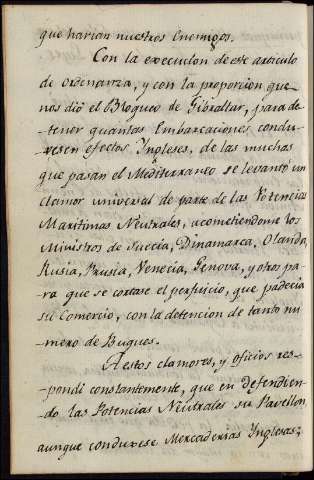 que harian nuestros Enemigos.
Con la execucion de este articulo
de ordenanza, y con la proporcion que
nos dió el Bloqueo de Gibraltar, para de-
-tener quantas Embarcaciones condu-
-xesen efectos Ingleses, de las muchas
que pasan el Mediterraneo se levantó un
clamor universal de parte de las Potencias
Maritimas Neutrales, acometiendome los
Ministros de Suecia, Dinamarca, Olanda,
Rusia, Prusia, Venecia, Genova, y otros pa-
-ra que se cortase el perjuicio, que padecia
su Comercio, con la detencion de tanto nu-
-mero de Buques.
A estos clamores, y oficios res-
-pondí constantemente, que en defendien-
-do las Potencias Neutrales su Pavellon,
aunque conduxese Mercaderias Inglesas,